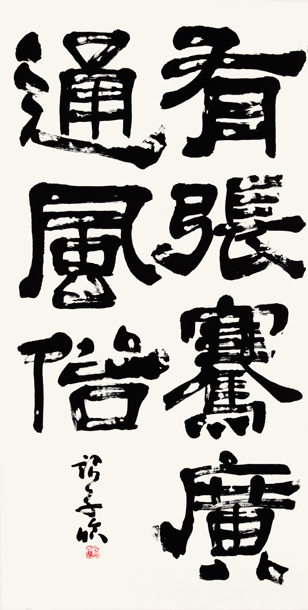 有張騫廣
通風俗